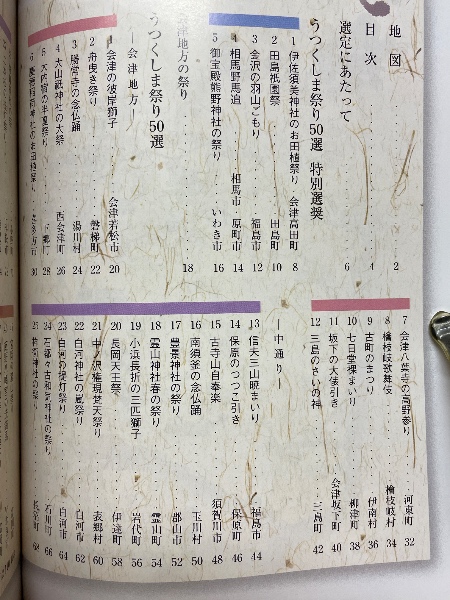 地図 2
目次 4
選定にあたって 6
うつくしま祭り50選 特別選奨
1 伊佐須美神社のお田植祭り 会津高田町 8
2 田島祇園祭 田島町 10
3 金沢の羽山ごもり 福島市 12
4 相馬野馬追 相馬市・原町市 14
5 御宝殿熊野神社の祭り いわき市 16
会津地方の祭り 18
うつくしま祭り50選
―会津地方―
1 会津の彼岸獅子 会津若松市 20
2 舟曳き祭り 磐梯町 22
3 勝常寺の念仏踊 湯川村 24
4 大山祇神社の大祭 西会津町 26
5 大内宿の半夏祭り 下郷町 28
6 慶徳稲荷神社のお田植祭り 喜多方市 30
7 会津八葉寺の高野参り 河東町 32
8 檜枝岐歌舞伎 檜枝岐村 34
9 古町のまつり 伊南村 36
10 七日堂裸まいり 柳津町 38
11 坂下の大俵引き 会津坂下町 40
12 三島のさいの神 三島町 42
―中通り―
13 信夫三山暁まいり 福島市 44
14 保原のつつこ引き 保原町 46
15 古寺山自奉楽 須賀川市 48
16 南須釜の念仏踊 玉川村 50
17 豊景神社の祭り 郡山市 52
18 霊山神社春の祭り 霊山町 54
19 小浜長折の三匹獅子 岩代町 56
20 長岡天王祭 伊達町 58
21 中ノ沢権現梵天祭り 表郷村 60
22 白河神社の嵐祭り 白河市 62
23 白河の提灯祭り 白河市 64
24 石都々古和気神社の祭り 石川町 66
25 神社の祭り 68